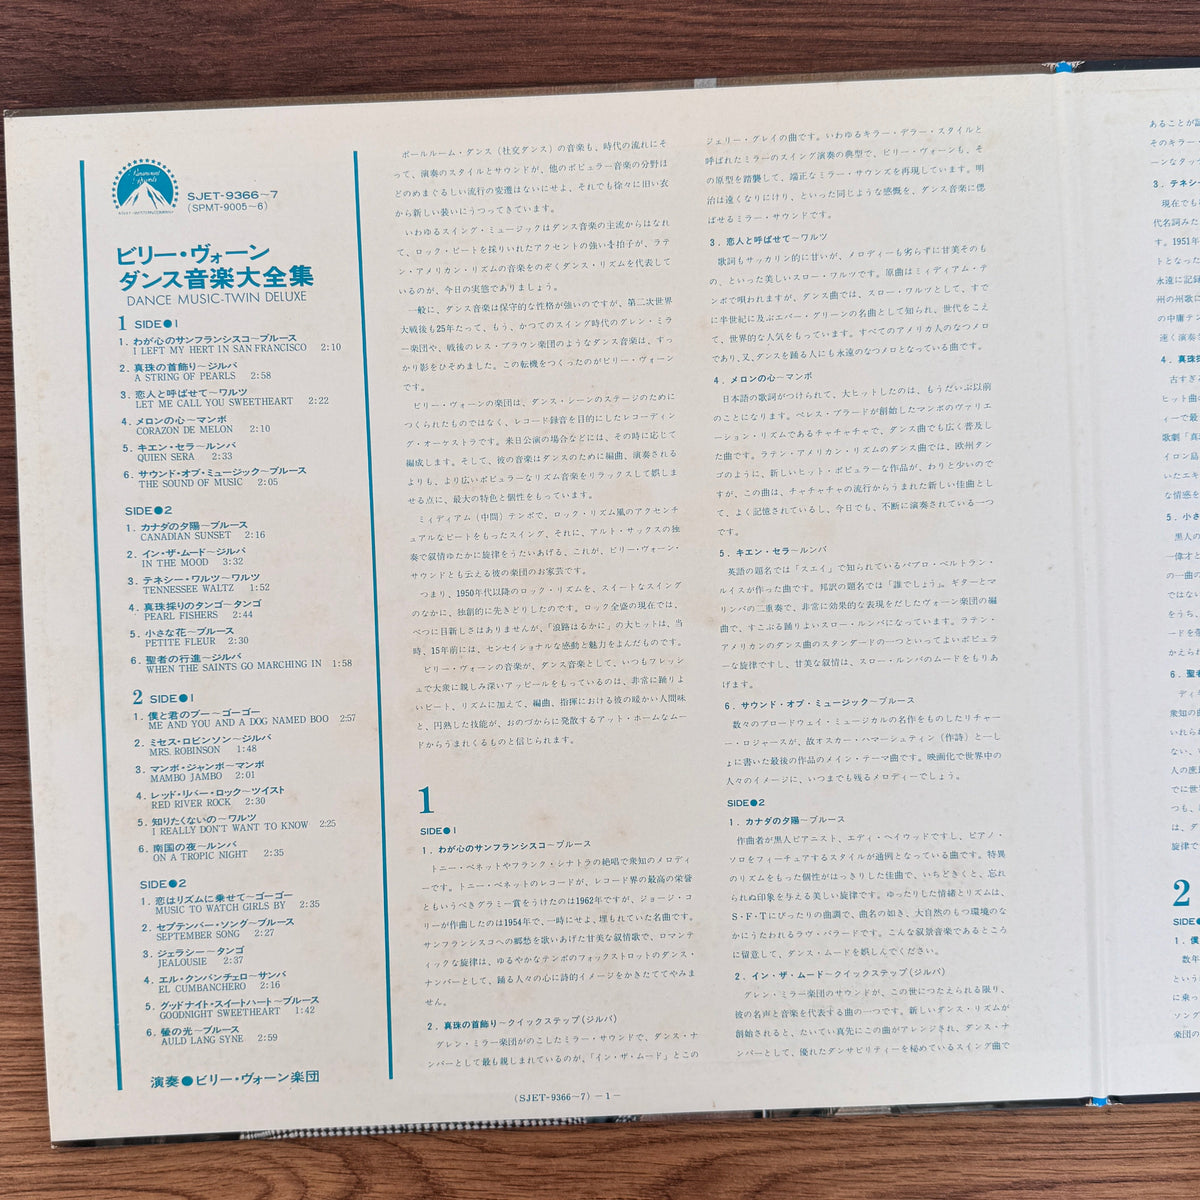 Paramount
Records
SJET-9366~7
(SPMT-9005~6)
ビリー・ヴォーン
ダンス音楽大全集
DANCE MUSIC-TWIN DELUXE
1 SIDE●1
1. わが心のサンフランシスコ~ブルース
I LEFT MY HERT IN SAN FRANCISCO 2:10
2. 真珠の首飾り~ジルバ
A STRING OF PEARLS 2:58
3. 恋人と呼ばせて~ワルツ
LET ME CALL YOU SWEETHEART 2:22
4. メロンの心~マンボ
CORAZON DE MELON 2:10
5. キエン・セラ~ルンバ
QUIEN SERA 2:33
6. サウンド・オブ・ミュージック~ブルース
THE SOUND OF MUSIC 2:05
SIDE●2
1. カナダの夕陽~ブルース
CANADIAN SUNSET 2:16
2. イン・ザ・ムード~ジルバ
IN THE MOOD 3:32
3. テネシー・ワルツ~ワルツ
TENNESSEE WALTZ 1:52
4. 真珠採りのタンゴ~タンゴ
PEARL FISHERS 2:44
5. 小さな花~ブルース
PETITE FLEUR 2:30
6. 聖者の行進~ジルバ
WHEN THE SAINTS GO MARCHING IN 1:58
2 SIDE●1
1. 僕と君のブー~ゴーゴー
ME AND YOU AND A DOG NAMED BOO 2:57
2. ミセス・ロビンソン~ジルバ
MRS. ROBINSON 1:48
3. マンボ・ジャンボ~マンボ
MAMBO JAMBO 2:01
4. レッド・リバー・ロック~ツイスト
RED RIVER ROCK 2:30
5. 知りたくないの~ワルツ
I REALLY DON'T WANT TO KNOW 2:25
6. 南国の夜~ルンバ
ON A TROPIC NIGHT 2:35
SIDE●2
1. 恋はリズムに乗せて~ゴーゴー
MUSIC TO WATCH GIRLS BY 2:35
2. セプテンバー・ソング~ブルース
SEPTEMBER SONG 2:27
3. ジェラシー~タンゴ
JEALOUSIE 2:37
4. エル・クンバンチェロ~サンバ
EL CUMBANCHERO 2:16
5. グッドナイト・スイートハート~ブルース
GOODNIGHT SWEETHEART 1:42
6. 螢の光~ブルース
AULD LANG SYNE 2:59
演奏●ビリー・ヴォーン楽団
ボールルーム・ダンス(社交ダンス)の音楽も、時代の流れにそ
って、演奏のスタイルとサウンドが、他のポピュラー音楽の分野ほ
どのめまぐるしい流行の変遷はないにせよ、それでも徐々に旧い衣
から新しい装いにうつってきています。
いわゆるスイング・ミュージックはダンス音楽の主流からはなれ
て、ロック・ビートを採りいれたアクセントの強い拍子が、ラテ
ン・アメリカン・リズムの音楽をのぞくダンス・リズムを代表して
いるのが、今日の実態でありましょう。
一般に、ダンス音楽は保守的な性格が強いのですが、第二次世界
大戦後も25年たって、もう、かつてのスイング時代のグレン・ミラ
ー楽団や、戦後のレス・ブラウン楽団のようなダンス音楽は、すっ
かり影をひそめました。この転機をつくったのがビリー・ヴォーン
です。
ビリー・ヴォーンの楽団は、ダンス・シーンのステージのために
つくられたものではなく、レコード録音を目的にしたレコーディン
グ・オーケストラです。来日公演の場合などには、その時に応じて
編成します。そして、彼の音楽はダンスのために編曲、演奏される
よりも、より広いポピュラーなリズム音楽をリラックスして娯しま
せる点に、最大の特色と個性をもっています。
ミィディアム(中間)テンポで、ロック・リズム風のアクセンチ
ュアルなビートをもったスイング、それに、アルト・サックスの独
奏で叙情ゆたかに旋律をうたいあげる、これが、ビリー・ヴォーン・
サウンドとも云える彼の楽団のお家芸です。
つまり、1950年代以降のロック・リズムを、スイートなスイング
のなかに、独創的に先きどりしたのです。ロック全盛の現在では、
べつに目新しさはありませんが、「浪路はるかに」の大ヒットは、当
時、15年前には、センセイショナルな感動と魅力をよんだものです。
ビリー・ヴォーンの音楽が、ダンス音楽として、いつもフレッシ
ュで大衆に親しみ深いアッピールをもっているのは、非常に踊りよ
いビート、リズムに加えて、編曲、指揮における彼の暖かい人間味
と、円熟した技能が、おのづからに発散するアット・ホームなムー
ドからうまれくるものと信じられます。
1
SIDE●1
1. わが心のサンフランシスコ~ブルース
トニー・ベネットやフランク・シナトラの絶唱で衆知のメロディ
ーです。トニー・ベネットのレコードが、レコード界の最高の栄誉
ともいうべきグラミー賞をうけたのは1962年ですが、ジョージ・コ
リーが作曲したのは1954年で、一時にせよ、埋もれていた名曲です。
サンフランシスコへの郷愁を歌いあげた甘美な叙情歌で、ロマンテ
ィックな旋律は、ゆるやかなテンポのフォックストロットのダンス・
ナンバーとして、踊る人々の心に詩的イメージをかきたててやみま
せん。
2. 真珠の首飾り~クイックステップ(ジルバ)
グレン・ミラー楽団がのこしたミラー・サウンドで、ダンス・ナ
ンバーとして最も親しまれているのが、「イン・ザ・ムード」とこの
ジェリー・グレイの曲です。いわゆるキラー・デラー・スタイルと
呼ばれたミラーのスイング演奏の典型で、ビリー・ヴォーンも、そ
の原型を踏襲して、端正なミラー・サウンズを再現しています。明
治は遠くなりにけり、といった同じような感慨を、ダンス音楽に偲
ばせるミラー・サウンドです。
3. 恋人と呼ばせて~ワルツ
歌詞もサッカリン的に甘いが、メロディーも劣らずに甘美そのも
の、といった美しいスロー・ワルツです。原曲はミィディアム・テ
ンポで唄われますが、ダンス曲では、スロー・ワルツとして、すで
に半世紀に及ぶエバー・グリーンの名曲として知られ、世代をこえ
て、世界的な人気をもっています。すべてのアメリカ人のなつメロ
であり、又、ダンスを踊る人にも永遠のなつメロとなっている曲です。
4. メロンの心~マンボ
日本語の歌詞がつけられて、大ヒットしたのは、もうだいぶ以前
のことになります。ペレス・プラードが創始したマンボのヴァリエ
ーション・リズムであるチャチャチャで、ダンス曲でも広く普及し
た曲です。ラテン・アメリカン・リズムのダンス曲では、欧州タン
ゴのように、新しいヒット・ポピュラーな作品が、わりと少いので
すが、この曲は、チャチャチャの流行からうまれた新しい佳曲とし
て、よく記憶されているし、今日でも、不断に演奏されている一つ
です。
5. キエン・セラ~ルンバ
英語の題名では「スエイ」で知られているパブロ・ベルトラン・
ルイスが作った曲です。邦訳の題名では「誰でしょう」。ギターとマ
リンバの二重奏で、非常に効果的な表現をだしたヴォーン楽団の編
曲で、すこぶる踊りよいスロー・ルンバになっています。ラテン・
アメリカンのダンス曲のスタンダードの一つといってよいポピュラ
ーな旋律ですし、甘美な叙情は、スロー・ルンバのムードをもりあ
げます。
6. サウンド・オブ・ミュージック~ブルース
数々のブロードウェイ・ミュージカルの名作をものしたリチャー
ー・ロジャースが、故オスカー・ハマーシュティン(作詩)と一し
ょに書いた最後の作品のメイン・テーマ曲です。映画化で世界中の
人々のイメージに、いつまでも残るメロディーでしょう。
SIDE●2
1. カナダの夕陽~ブルース
作曲者が黒人ピアニスト、エディ・ヘイウッドですし、ピアノ・
ソロをフィーチュアするスタイルが通例となっている曲です。特異
のリズムをもった個性がはっきりした佳曲で、いちどきくと、忘れ
られぬ印象を与える美しい旋律です。ゆったりした情緒とリズムは、
S・F・Tにぴったりの曲調で、曲名の如き、大自然のもつ環境のな
かにうたわれるラヴ・バラードです。こんな叙景音楽であるところ
に留意して、ダンス・ムードを娯しんでください。
2. イン・ザ・ムード~クイックステップ(ジルバ)
グレン・ミラー楽団のサウンドが、この世につたえられる限り、
彼の名声と音楽を代表する曲の一つです。新しいダンス・リズムが
創始されると、たいてい真先にこの曲がアレンジされ、ダンス・ナ
ンバーとして、優れたダンサビリティーを秘めているスイング曲で
(SJET-9366~7) -1-
あることが証
そのキラー・
ーンなタッ
3. テネシー
現在でも
代名詞みた
す。1951年
トとなった
永遠に記録
州の州歌に
の中庸テン
速く演奏
4. 真珠採
古すぎる
ヒット曲の
ィーで最
歌劇「真
イロン島
いたエキ
な情感を
5. 小さ
黒人の
一偉才と
の一曲の
ではない
をうち、
ードを
かえられ
6. 聖者
ディ
衆知の曲
いれられ
ない、
人の庶民
でに世
つも、
は、ダ
旋律で
2
SIDE●
1. 僕
数年
という
に乗っ
ソング
楽団の